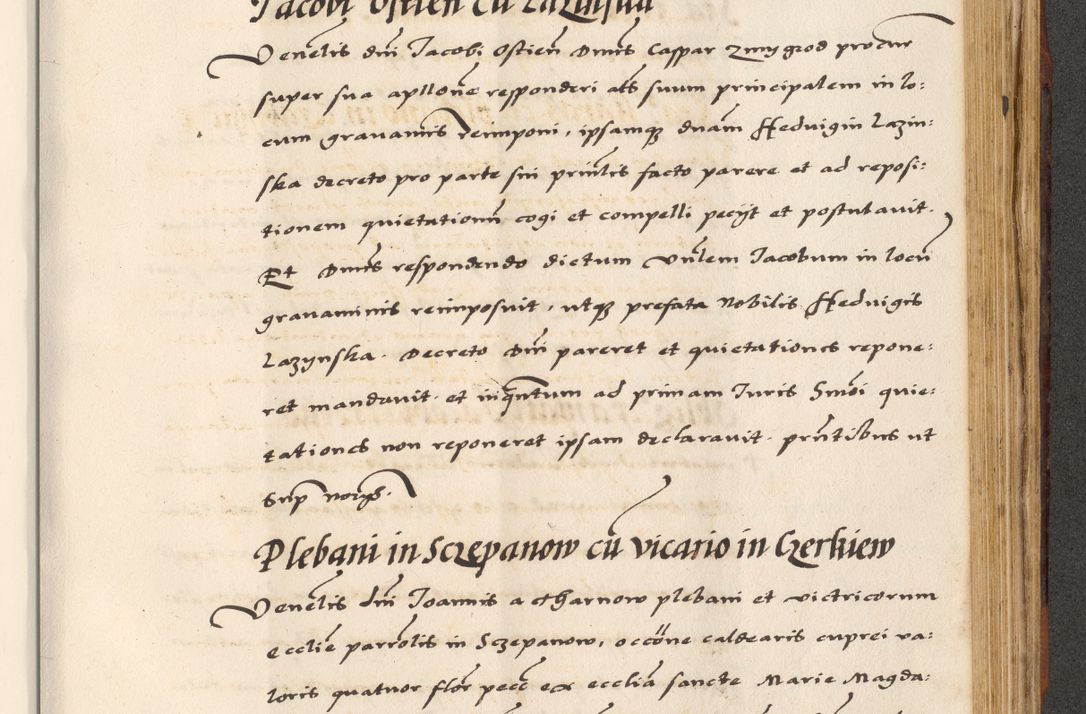 Jacobi Ostien cū Lazinska
Venelis dni Jacobi Ostien Dnus Caspar Zmygrod procur
super sua apllone responderi als suum principalem in lo:
cum gravamis reimponi, ipsamqz dnam Hedvigin Lazin:
ska decreto pro parte sui prinlis facto parere et ad reposi:
tionem quietationū cogi et compelli pecijt et postulavit.
Et Dnus respondendo dictum Vnlem Jacobum in locū
gravaminis reimposuit, utqz prefata Nobilis Hedvigis
Lazynska. Decreto Dni pareret et quietationes repone:
ret mandavit. et inqntum ad primam Juris Smoi quie:
tationes non reponeret ipsam declaravit. prntibus ut
Sup norijs.
Plebani in Sczepanow cū vicario in Czerkiew
Venelis dni Joannis a Tharnow plebani et victricorum
ecclie parrolis in Sczepanow, occone caldearis cuprei va:
loris quatuor flor pecc ex ecclia sancte Marie Magda: